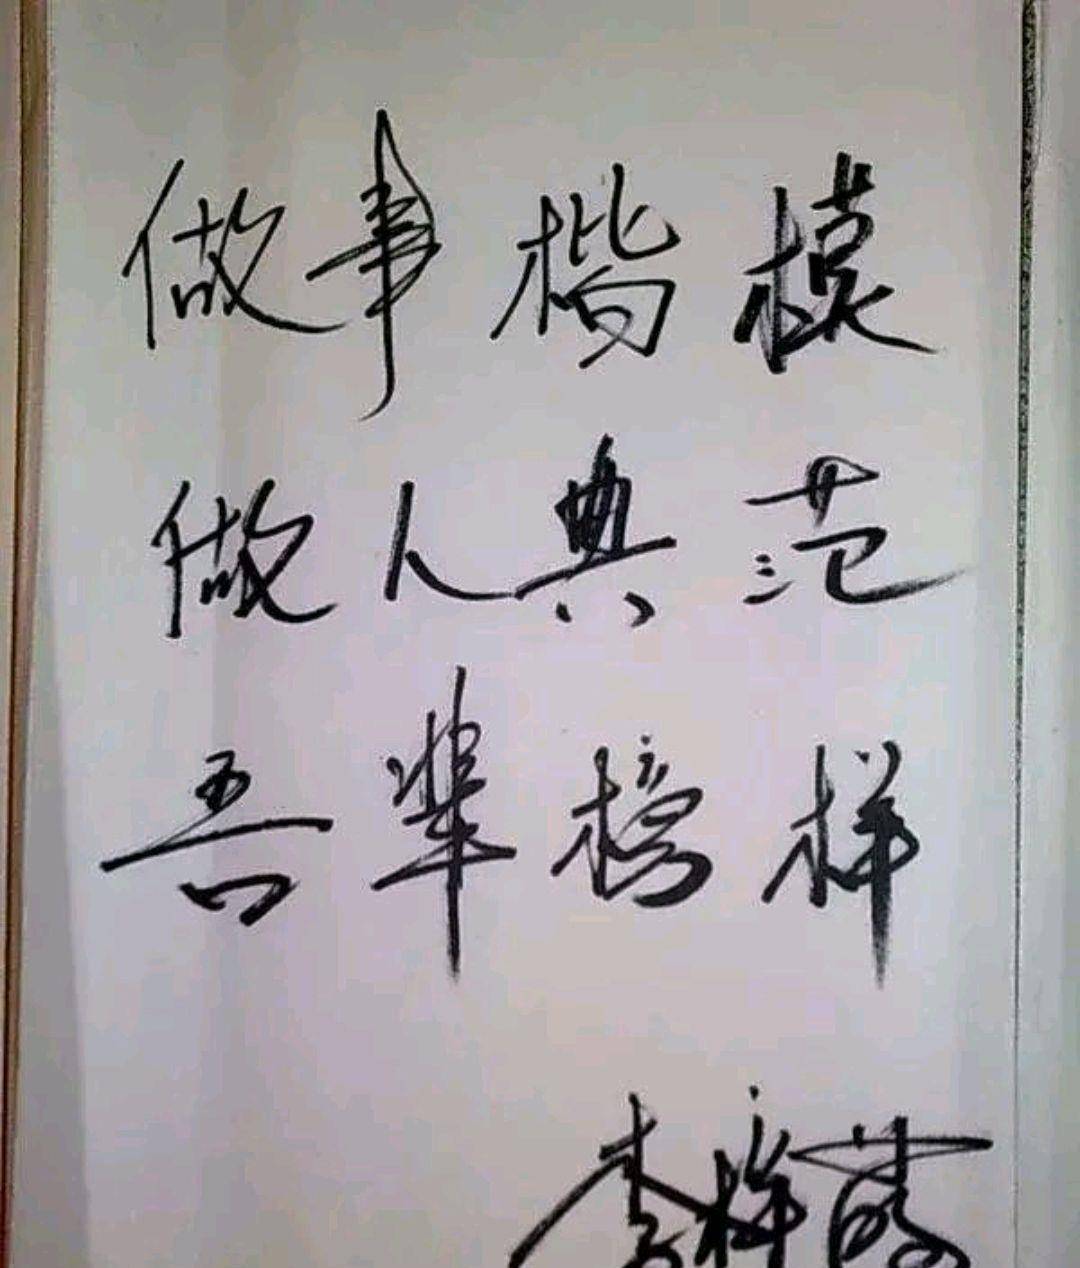 做事楷模
做人典范
吾辈榜样
李